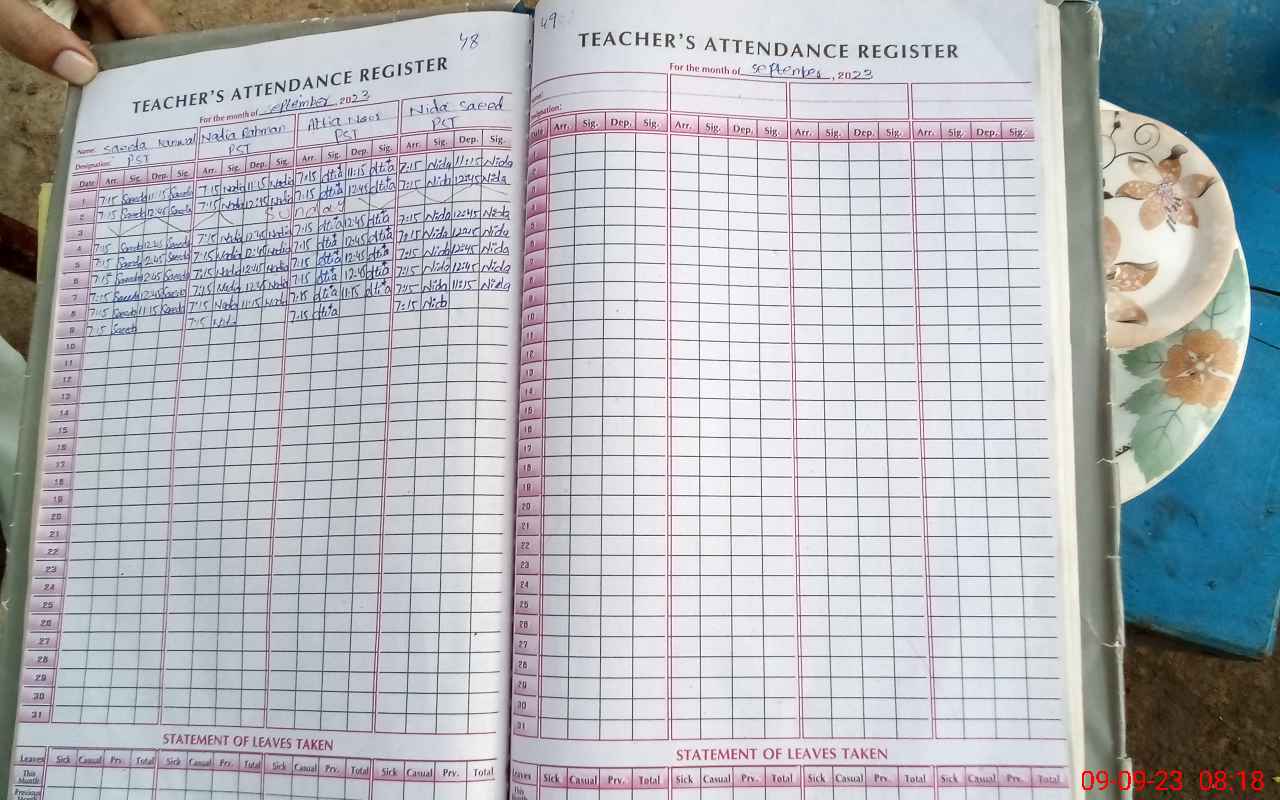 48
TEACHER'S ATTENDANCE REGISTER
For the month of september, 2023
Name: Saeeda Kanwal Nadia Rahman Attia Noor Nida Saeed
Designation: PST PST PST PST
Date Arr. Sig. Dep. Sig. Arr. Sig. Dep. Sig. Arr. Sig. Dep. Sig. Arr. Sig. Dep. Sig.
1 7:15 Saeeda 11:15 Saeeda 7:15 Nadia 11:15 Nadia 7:15 Attia 11:15 Attia 7:15 Nida 11:15 Nida
2 7:15 Saeeda 12:45 Saeeda 7:15 Nadia 12:45 Nadia 7:15 Attia 12:45 Attia 7:15 Nida 12:45 Nida
3 Sunday
4 7:15 Saeeda 12:45 Saeeda 7:15 Nadia 12:45 Nadia 7:15 Attia 12:45 Attia 7:15 Nida 12:45 Nida
5 7:15 Saeeda 12:45 Saeeda 7:15 Nadia 12:45 Nadia 7:15 Attia 12:45 Attia 7:15 Nida 12:45 Nida
6 7:15 Saeeda 12:45 Saeeda 7:15 Nadia 12:45 Nadia 7:15 Attia 12:45 Attia 7:15 Nida 12:45 Nida
7 7:15 Saeeda 12:45 Saeeda 7:15 Nadia 12:45 Nadia 7:15 Attia 12:45 Attia 7:15 Nida 12:45 Nida
8 7:15 Saeeda 11:15 Saeeda 7:15 Nadia 11:15 Nadia 7:15 Attia 11:15 Attia 7:15 Nida 11:15 Nida
9 7:15 Saeeda 7:15 7:15 Attia 7:15 Nida
10
11
12
13
14
15
16
17
18
19
20
21
22
23
24
25
26
27
28
29
30
31
STATEMENT OF LEAVES TAKEN
Leaves Sick Casual Prv. Total Sick Casual Prv. Total Sick Casual Prv. Total Sick Casual Prv. Total
This Month
Previous Month
49
TEACHER'S ATTENDANCE REGISTER
For the month of september, 2023
Name:
Designation:
Date Arr. Sig. Dep. Sig. Arr. Sig. Dep. Sig. Arr. Sig. Dep. Sig. Arr. Sig. Dep. Sig.
1
2
3
4
5
6
7
8
9
10
11
12
13
14
15
16
17
18
19
20
21
22
23
24
25
26
27
28
29
30
31
STATEMENT OF LEAVES TAKEN
Leaves Sick Casual Prv. Total Sick Casual Prv. Total Sick Casual Prv. Total Sick Casual Prv. Total
This
09-09-23 08:18